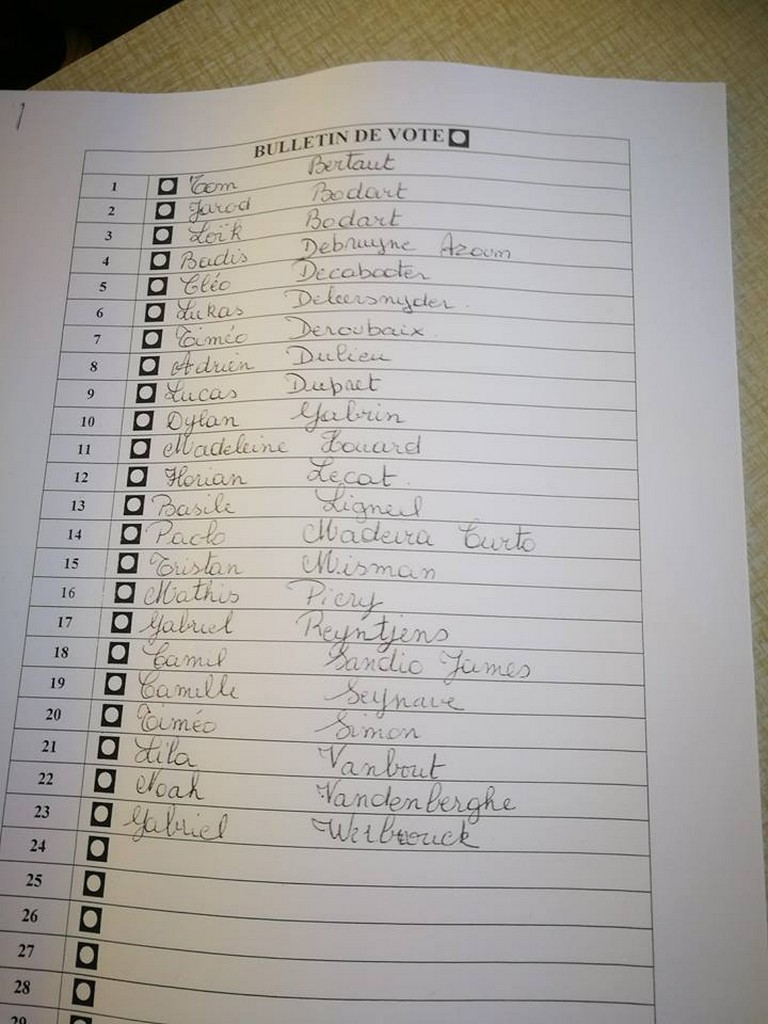 BULLETIN DE VOTE
1 Tom Bertaut
2 Jarod Bodart
3 Loïk Bodart
4 Badis Debruyne Azoum
5 Cléo Decabooter
6 Lukas Dekersnyder.
7 Timéo Deroubaix.
8 Adrien Dulieu
9 Lucas Dupret
10 Dylan Gabrin
11 Madeleine Houard
12 Florian Lecat.
13 Basile Ligneil
14 Paolo Madeira Curto
15 Tristan Misman
16 Mathis Piery
17 Gabriel Reyntjens
18 Camil Sandio James
19 Camille Seynave
20 Timéo Simon
21 Lila Vanbout
22 Noah Vandenberghe
23 Gabriel Werbrouck
24
25
26
27
28
29